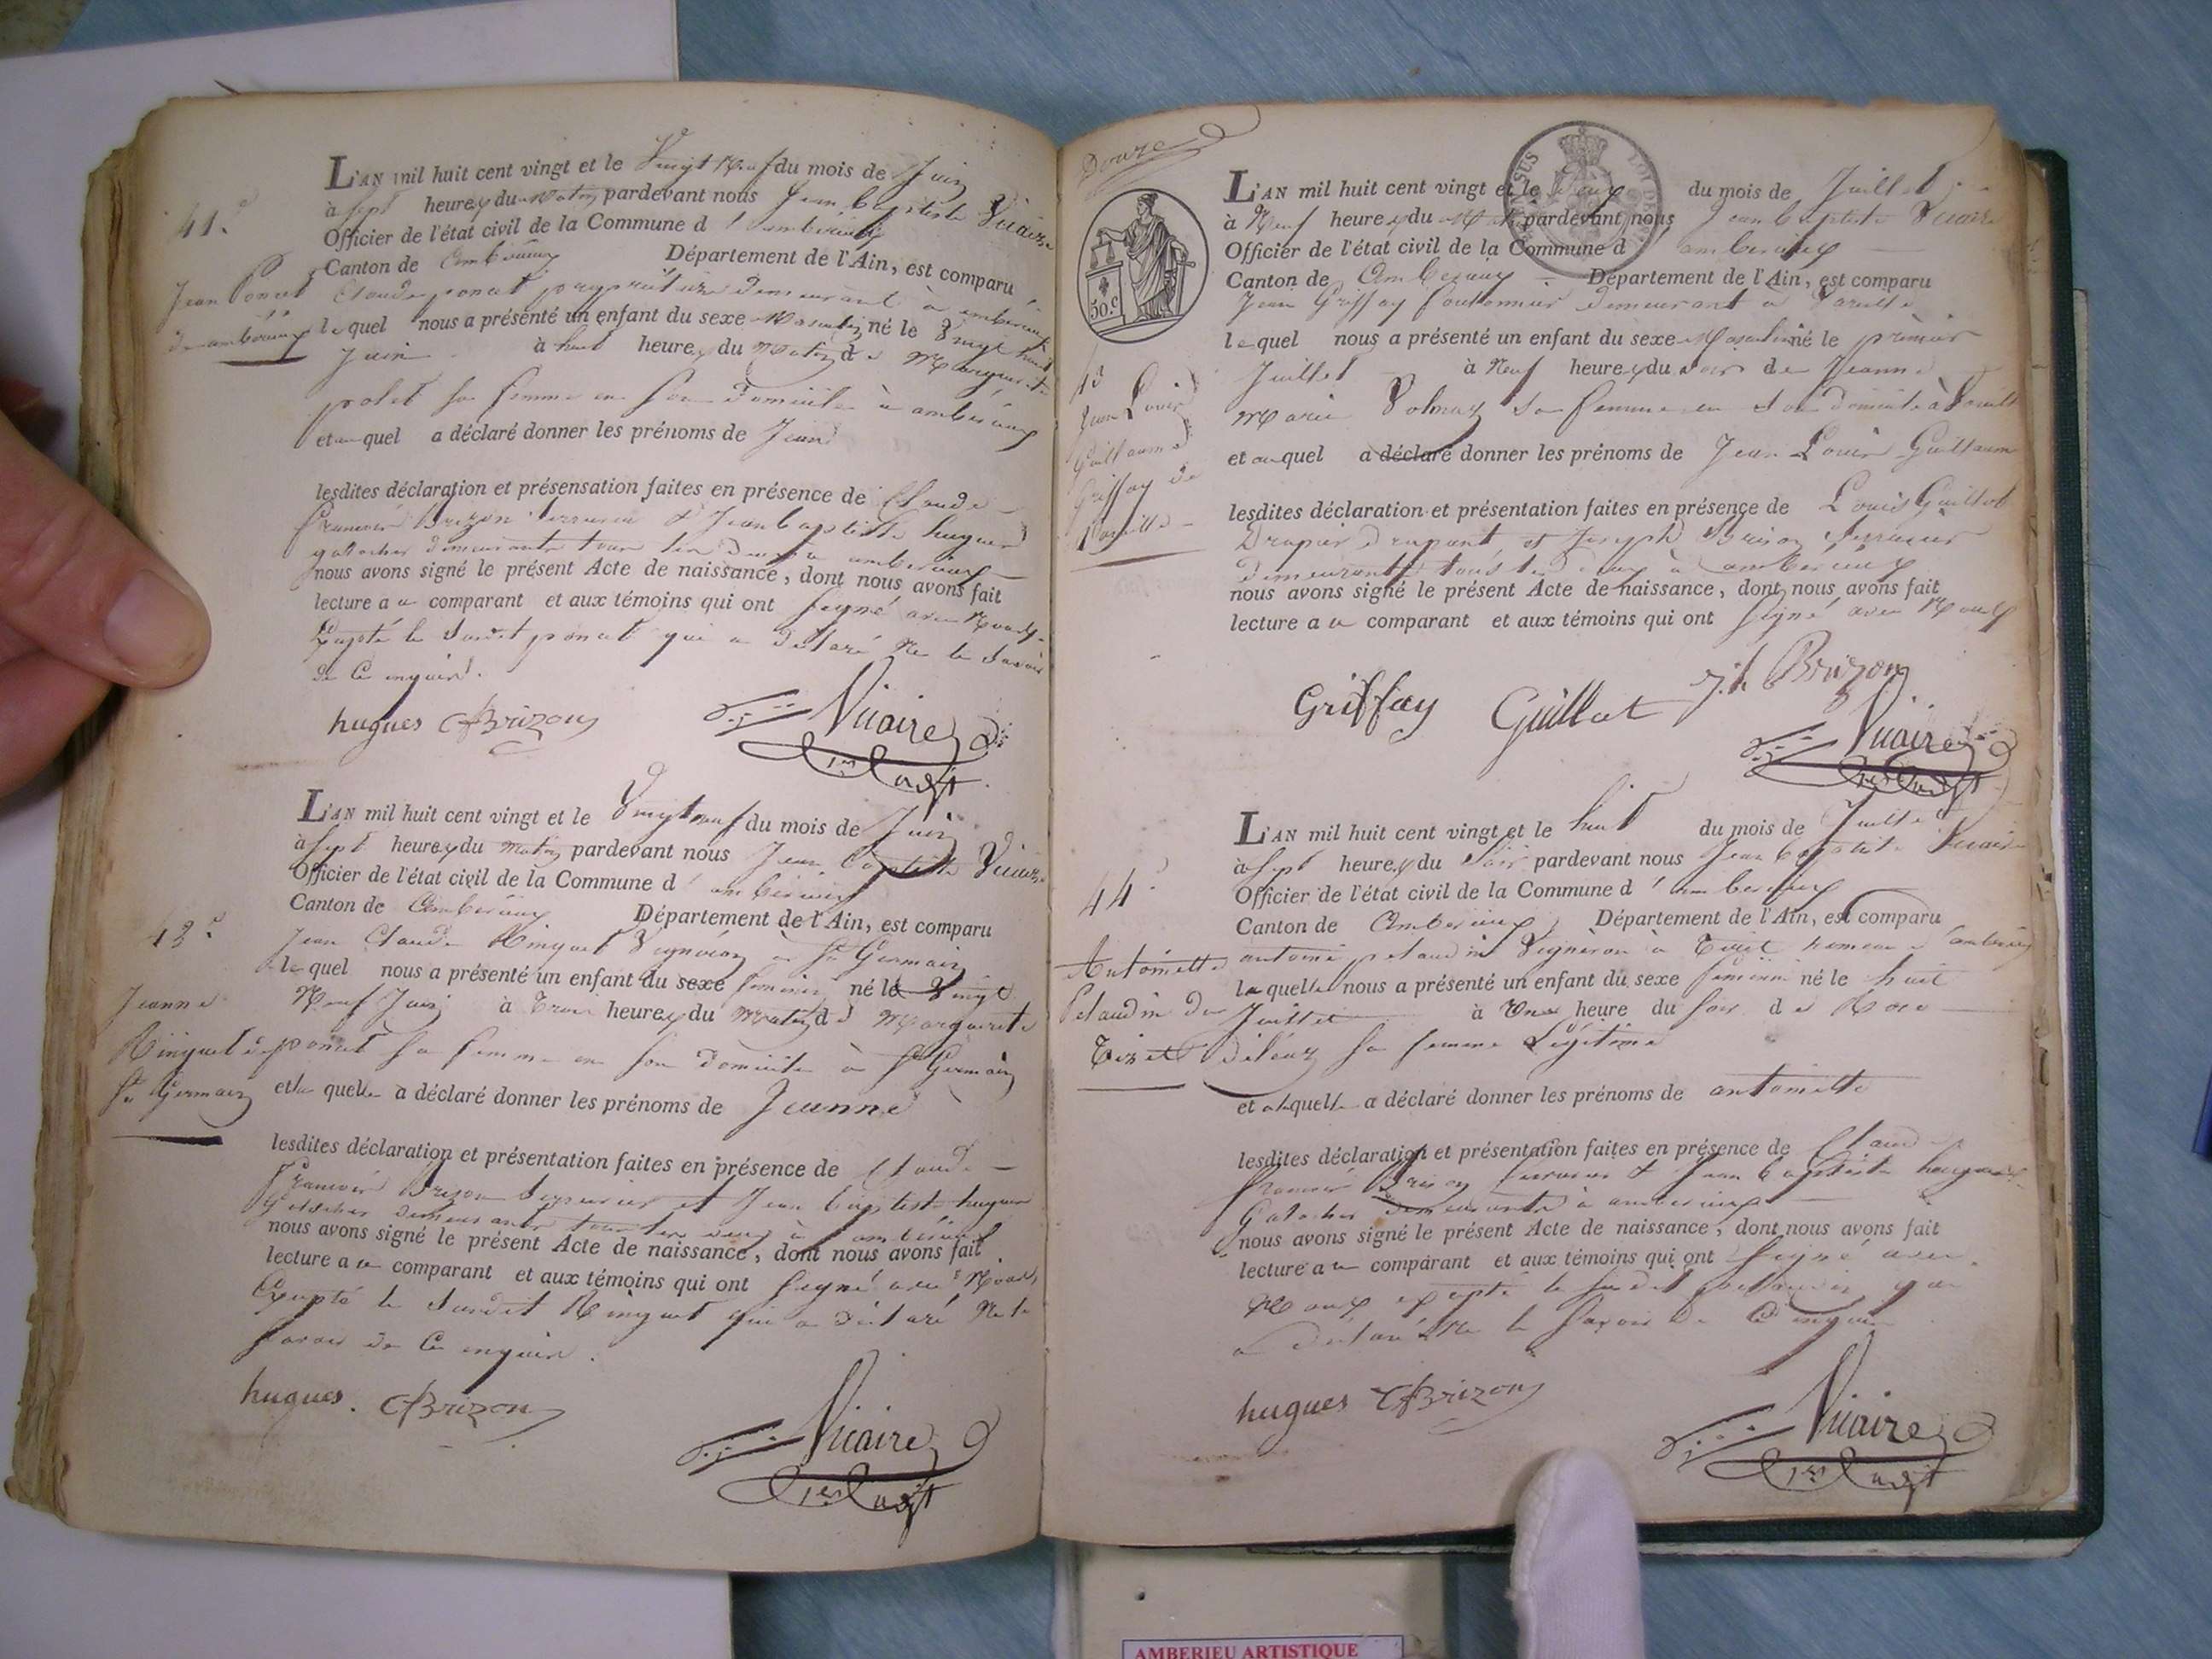 41.e
Jean Ponat
de amberieux
L'AN mil huit cent vingt et le Vingt Neuf du mois de Juin
à Sept heures du Matin pardevant nous Jean Baptiste Vicaire
Officier de l'état civil de la Commune d' amberieux
Canton de Amberieux Département de l'Ain, est comparu
Claude ponat propriétaire demeurant à amberieux
lequel nous a présenté un enfant du sexe Masculin né le Vingt huit
Juin à huit heures du Matin de Marguerite
polet sa femme en son domicile à amberieux
et auquel a déclaré donner les prénoms de Jean
lesdites déclaration et présensation faites en présence de Claude
francois Brizon Serrurier & Jean baptiste hugues
galocher demeurants tous les deux a amberieux
nous avons signé le présent Acte de naissance, dont nous avons fait
lecture au comparant et aux témoins qui ont signé avec Nous
Excepté le Susdit ponat qui a Déclaré Ne le Savoir
de Ce enquis.
hugues CfBrizon Vicaire
1er adjt
43.e
Jeanne
Ringuet de
St Germain
L'AN mil huit cent vingt et le Vingt neuf du mois de Juin
à Sept heures du Matin pardevant nous Jean Baptiste Vicaire
Officier de l'état civil de la Commune d' amberieux
Canton de Amberieux Département de l'Ain, est comparu
Jean Claude Ringuet Vigneron à St Germain
lequel nous a présenté un enfant du sexe feminin né le Vingt
Neuf Juin à Trois heures du Matin de Marguerite
ponat sa femme en son domicile à St Germain
et la quelle a déclaré donner les prénoms de Jeanne
lesdites déclaration et présentation faites en présence de Claude
francois Brizon Serrurier et Jean baptiste hugues
Galocher demeurants tous les deux à amberieux
nous avons signé le présent Acte de naissance, dont nous avons fait
lecture au comparant et aux témoins qui ont signé avec Nous
Excepté le Susdit Ringuet qui a déclaré Ne le
savoir de Ce enquis.
hugues. CfBrizon Vicaire
1er adjt
Douze
50.c
43
Jean Louis
Guillaume
Griffay de
Vareille
L'AN mil huit cent vingt et le Deux du mois de Juillet
à Neuf heures du Matin pardevant nous Jean baptiste Vicaire
Officier de l'état civil de la Commune d' amberieux
Canton de Amberieux Département de l'Ain, est comparu
Jean Griffay demeurant a Vareille
lequel nous a présenté un enfant du sexe Masculin né le premier
Juillet à Neuf heures du soir de Jeanne
Marie Volmay sa femme en son domicile à Vareille
et auquel a déclaré donner les prénoms de Jean Louis Guillaume
lesdites déclaration et présentation faites en présence de Louis Guillot
Drapier drapant et Joseph Brizon Serrurier
demeurants tous les deux à amberieux
nous avons signé le présent Acte de naissance, dont nous avons fait
lecture au comparant et aux témoins qui ont signé avec Nous
Griffay Guillot J.h Brizon
Vicaire
1er adjt
44.e
Antoinette
Petaudin de
Tiret
L'AN mil huit cent vingt et le huit du mois de Juillet
à Sept heures du Soir pardevant nous Jean baptiste Vicaire
Officier de l'état civil de la Commune d' amberieux
Canton de Amberieux Département de l'Ain, est comparu
antoine petaudin Vigneron à Tiret hameau d'amberieux
laquelle nous a présenté un enfant du sexe feminin né le huit
Juillet à Une heure du soir de
sa femme Légitime
et alaquelle a déclaré donner les prénoms de antoinette
lesdites déclaration et présentation faites en présence de Claude
francois Brizon Serrurier & Jean baptiste hugues
Galocher demeurants à amberieux
nous avons signé le présent Acte de naissance, dont nous avons fait
lecture au comparant et aux témoins qui ont signé avec
Nous excepté le susdit petaudin qui
a déclaré Ne le savoir de Ce enquis
hugues CfBrizon Vicaire
1er adjt
AMBERIEU ARTISTIQUE